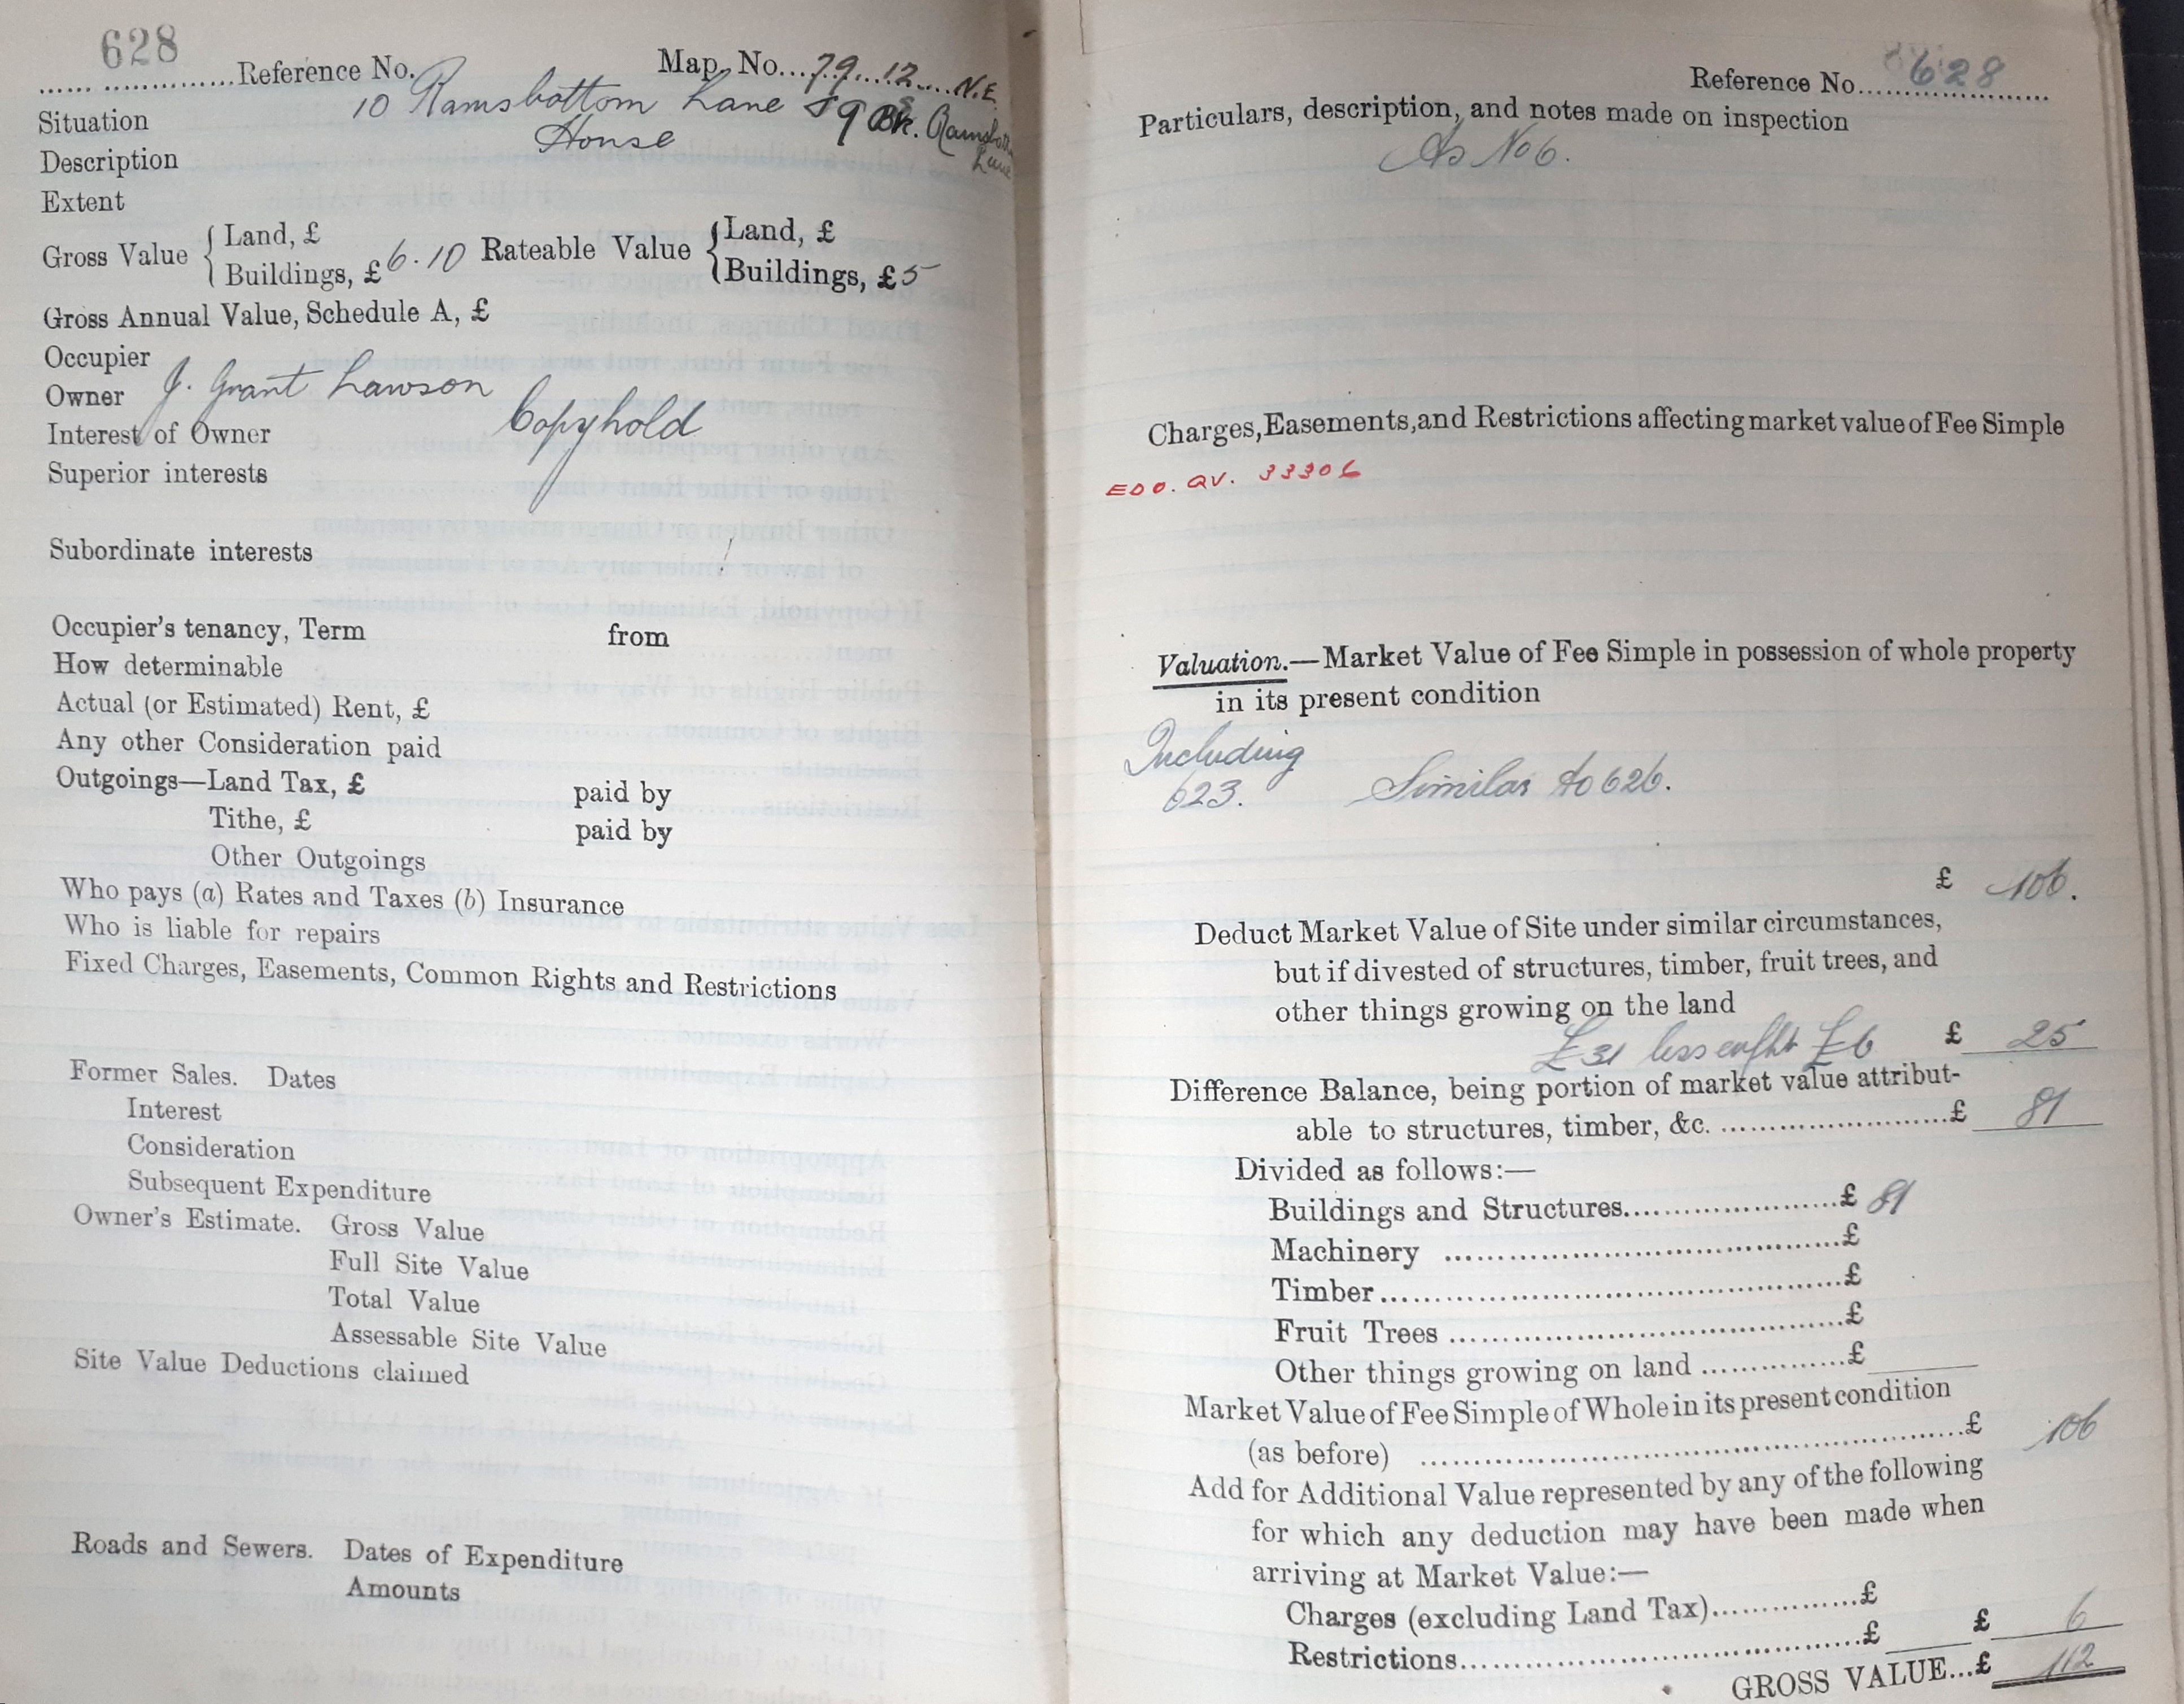 628
Reference No. Map. No. 79. 12. N.E.
Situation 10 Ramsbottom Lane & 9 Bk. Ramsbottom Lane
Description House
Extent
Gross Value { Land, £ Rateable Value { Land, £
Buildings, £ 6.10 Buildings, £ 5
Gross Annual Value, Schedule A, £
Occupier
Owner J. Grant Lawson
Interest of Owner Copyhold
Superior interests
Subordinate interests
Occupier's tenancy, Term from
How determinable
Actual (or Estimated) Rent, £
Any other Consideration paid
Outgoings—Land Tax, £ paid by
Tithe, £ paid by
Other Outgoings
Who pays (a) Rates and Taxes (b) Insurance
Who is liable for repairs
Fixed Charges, Easements, Common Rights and Restrictions
Former Sales. Dates
Interest
Consideration
Subsequent Expenditure
Owner's Estimate. Gross Value
Full Site Value
Total Value
Assessable Site Value
Site Value Deductions claimed
Roads and Sewers. Dates of Expenditure
Amounts
Reference No. 628
Particulars, description, and notes made on inspection
As No 6.
Charges, Easements, and Restrictions affecting market value of Fee Simple
EDO. QV. 33306
Valuation.—Market Value of Fee Simple in possession of whole property
in its present condition
Including
623. Similar to 626.
£ 106.
Deduct Market Value of Site under similar circumstances,
but if divested of structures, timber, fruit trees, and
other things growing on the land
£31 less £6 £ 25
Difference Balance, being portion of market value attribut-
able to structures, timber, &c. £ 81
Divided as follows:—
Buildings and Structures £ 81
Machinery £
Timber £
Fruit Trees £
Other things growing on land £
Market Value of Fee Simple of Whole in its present condition
(as before) £ 106
Add for Additional Value represented by any of the following
for which any deduction may have been made when
arriving at Market Value:—
Charges (excluding Land Tax) £
Restrictions £ £ 6
GROSS VALUE...£ 112